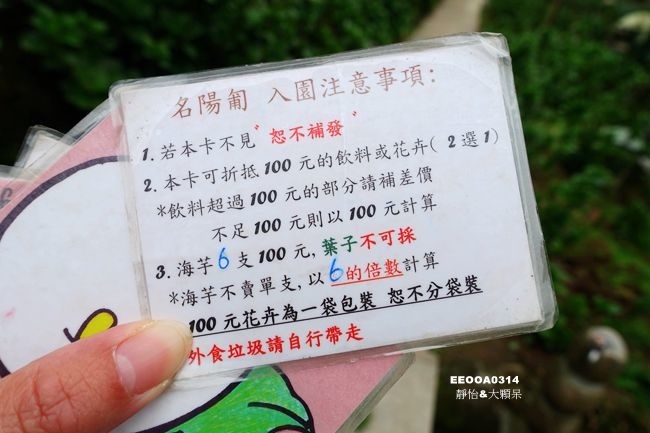 名陽匍 入園注意事項:
1. 若本卡不見〝恕不補發〞
2. 本卡可折抵100元的飲料或花卉(2選1)
*飲料超過100元的部分請補差價
不足100元則以100元計算
3. 海芋6支100元,葉子不可採
*海芋不賣單支,以6的倍數計算
100元花卉為一袋包裝 恕不分袋裝
外食垃圾請自行帶走
EEOOA0314
靜怡&大顆呆